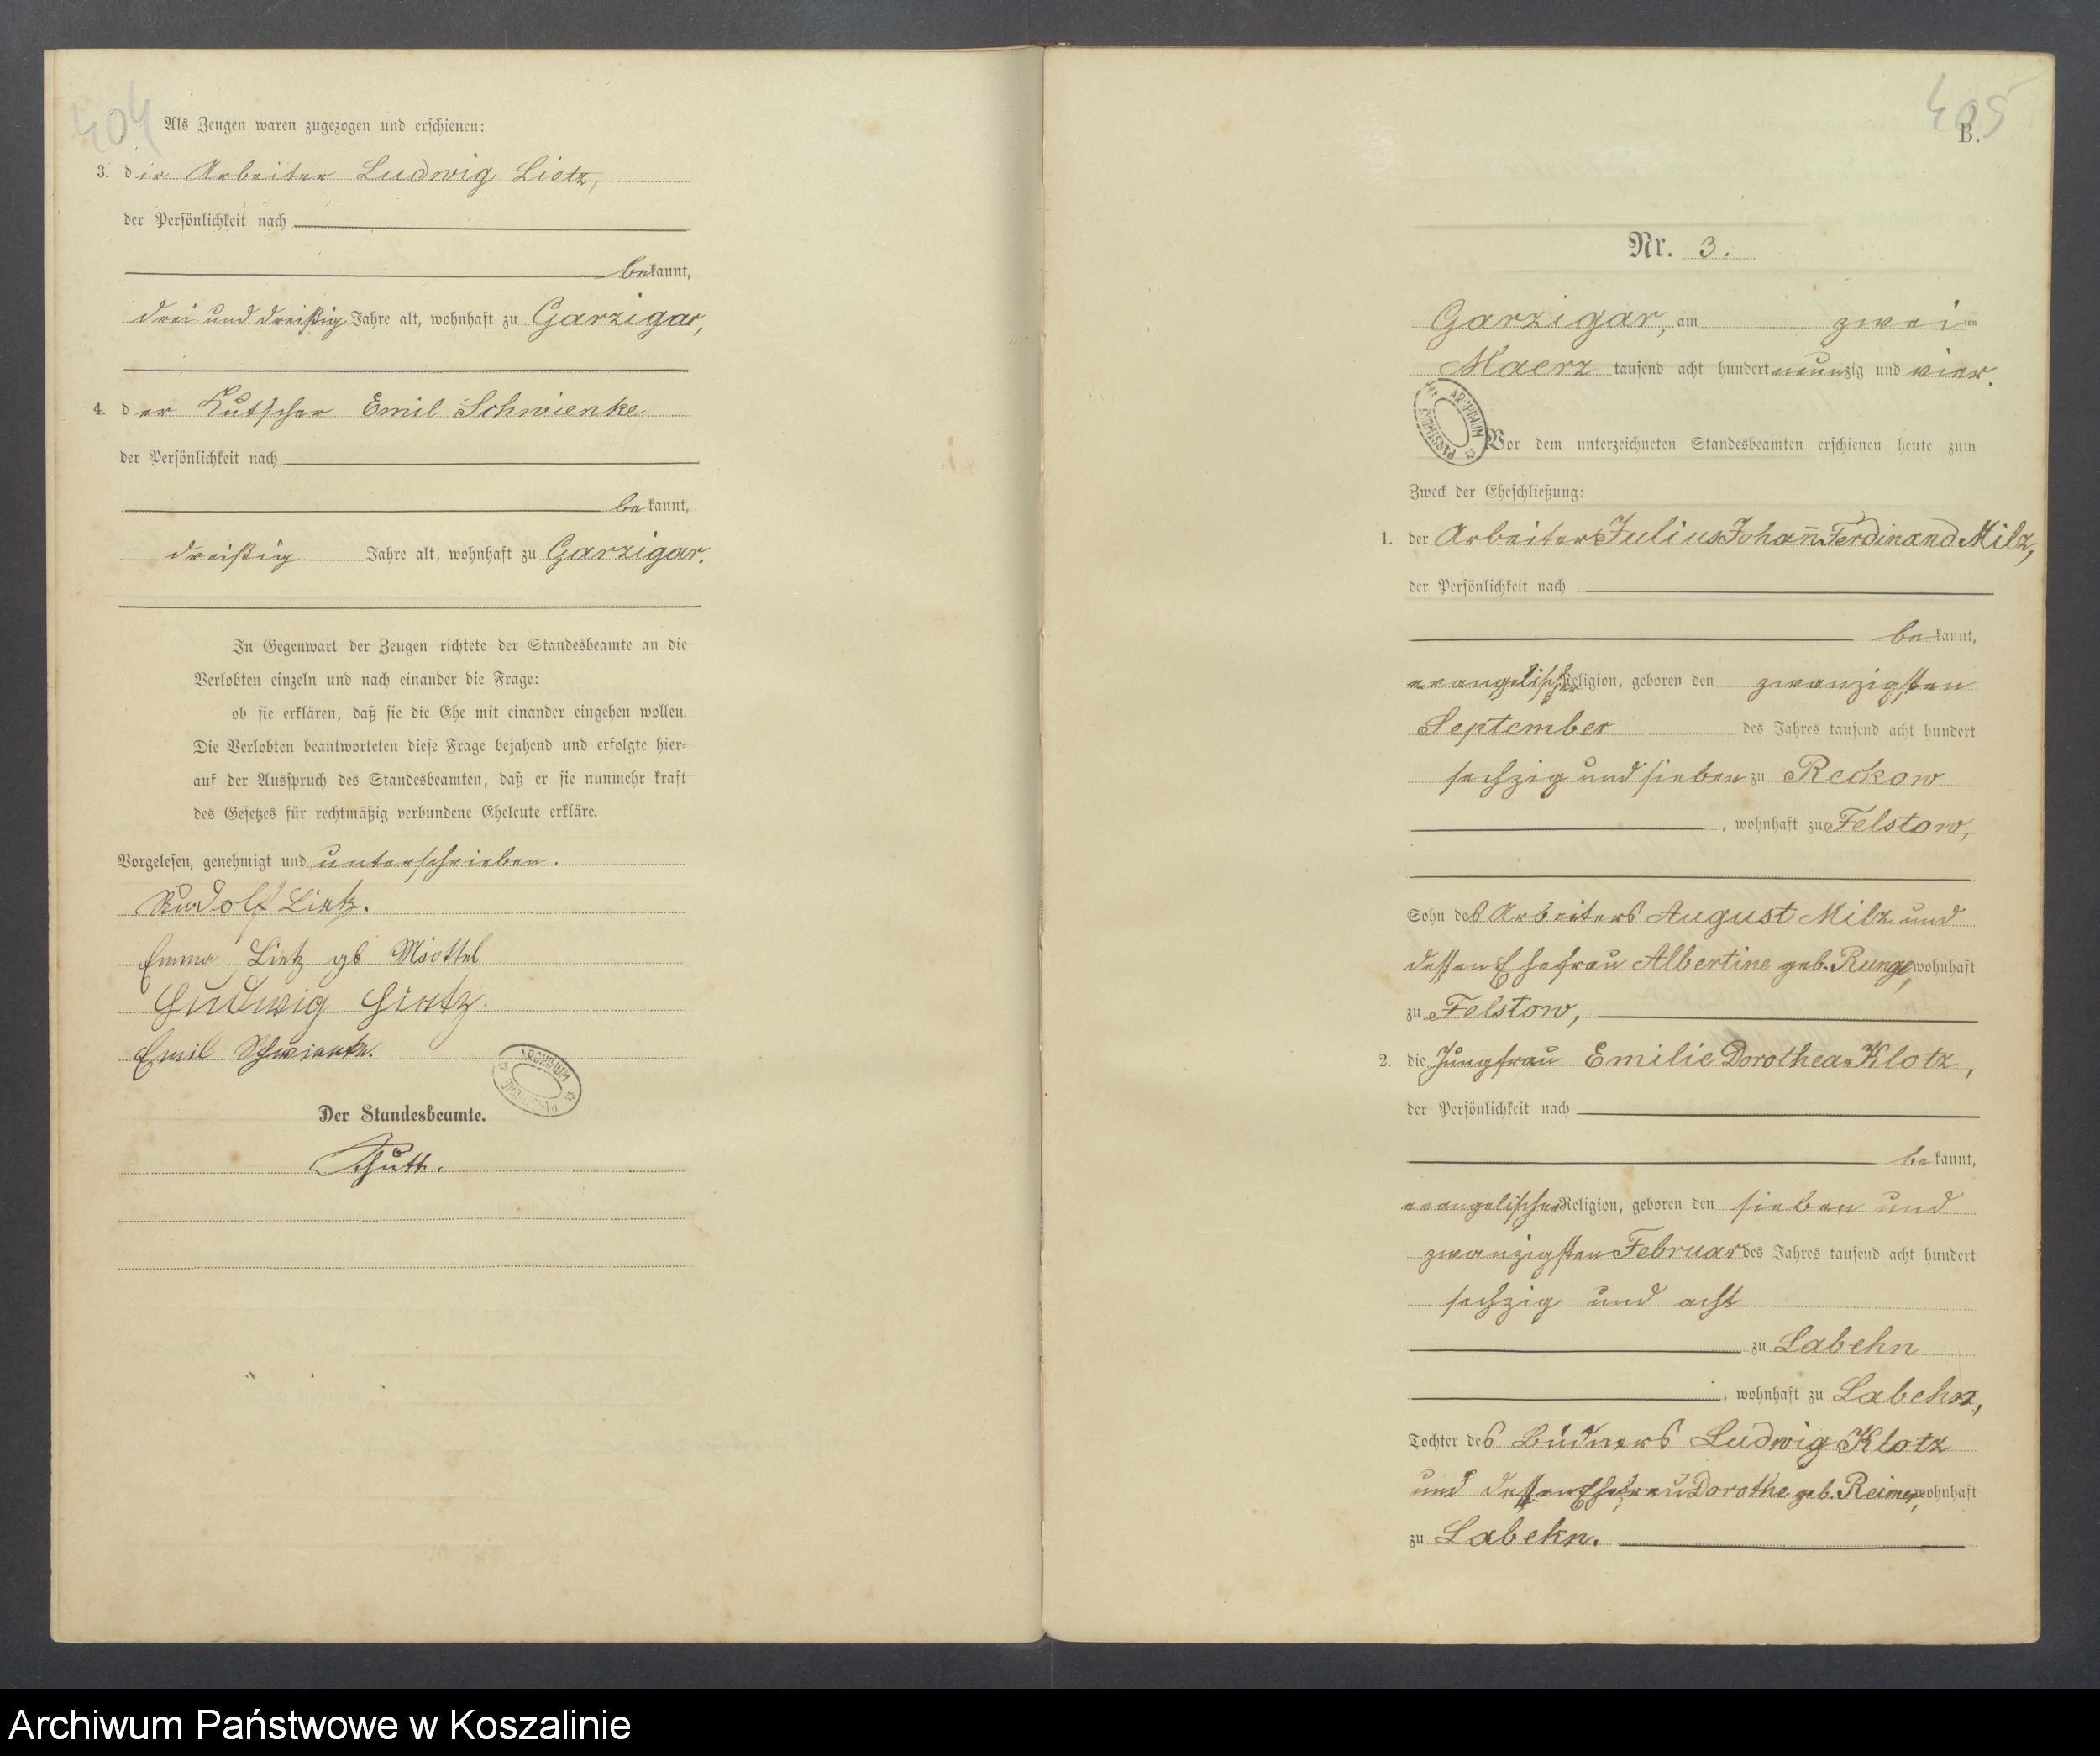 404
Als Zeugen waren zugezogen und erschienen:
3. der Arbeiter Ludwig Lietz,
der Persönlichkeit nach
bekannt,
drei und dreißig Jahre alt, wohnhaft zu Garzigar,
4. der Kutscher Emil Schwienke
der Persönlichkeit nach
bekannt,
dreißig Jahre alt, wohnhaft zu Garzigar.
In Gegenwart der Zeugen richtete der Standesbeamte an die
Verlobten einzeln und nach einander die Frage:
ob sie erklären, daß sie die Ehe mit einander eingehen wollen.
Die Verlobten beantworteten diese Frage bejahend und erfolgte hier-
auf der Ausspruch des Standesbeamten, daß er sie nunmehr kraft
des Gesetzes für rechtmäßig verbundene Eheleute erkläre.
Vorgelesen, genehmigt und unterschrieben.
Rudolf Lietz.
Emma Lietz gb
Ludwig Lietz.
Emil Schwienke.
ARCHIWUM PAŃSTWOWE
Der Standesbeamte.
405
B.
Nr. 3.
Garzigar, am zwei ten
Maerz tausend acht hundert neunzig und vier.
ARCHIWUM PAŃSTWOWE
Vor dem unterzeichneten Standesbeamten erschienen heute zum
Zweck der Eheschließung:
1. der Arbeiter Julius Johann Ferdinand Milz,
der Persönlichkeit nach
bekannt,
evangelischer Religion, geboren den zwanzigsten
September des Jahres tausend acht hundert
sechzig und sieben zu Reckow
, wohnhaft zu Felstow,
Sohn des Arbeiters August Milz und
dessen Ehefrau Albertine geb. Runge, wohnhaft
zu Felstow,
2. die Jungfrau Emilie Dorothea Klotz,
der Persönlichkeit nach
bekannt,
evangelischer Religion, geboren den sieben und
zwanzigsten Februar des Jahres tausend acht hundert
sechzig und acht
zu Labehn
, wohnhaft zu Labehn,
Tochter des Büdners Ludwig Klotz
und dessen Ehefrau Dorothe geb. Reimer, wohnhaft
zu Labehn.
Archiwum Państwowe w Koszalinie